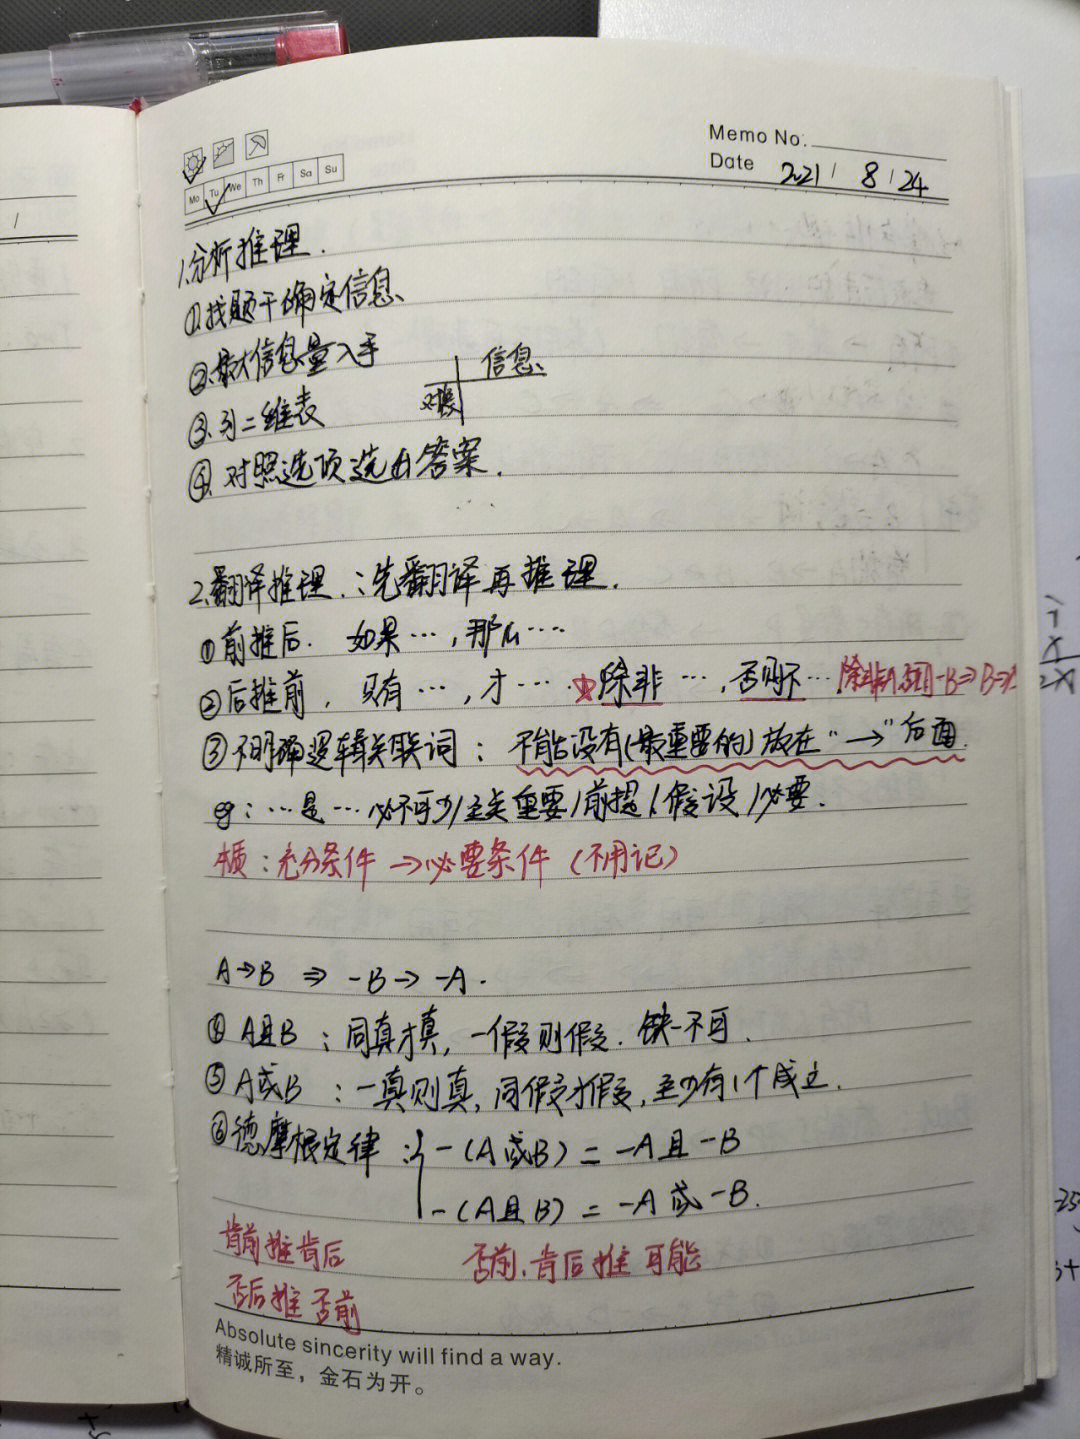 Memo No:
Date 2021 / 8 / 24
Mo Tu We Th Fr Sa Su
1.分析推理.
①找题干确定信息
②.最大信息量入手
信息
③.列二维表
对象
④.对照选项选出答案.
2.翻译推理.:先翻译再推理.
①前推后. 如果…,那么…
②后推前, 只有…,才… ☆除非…,否则不…
③不明确逻辑关联词: 不能没有(最重要的)放在“→”后面.
eg:…是…必不可少/至关重要/前提/假设/必要.
本质:充分条件→必要条件(不用记)
A→B ⇒ -B→-A.
④ A且B:同真才真,一假则假.缺一不可.
⑤ A或B:一真则真,同假才假,至少有1个成立.
⑥德摩根定律:{ -(A或B)= -A且-B
-(A且B)= -A或-B.
肯前推肯后 否前.肯后推可能
否后推否前
Absolute sincerity will find a way.
精诚所至，金石为开。